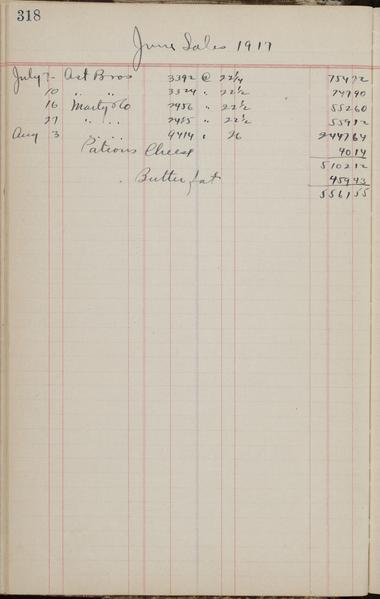 318
June Sales 1917
July 7- Bros 3392 @ 22¼ 75472
10 " " 3324 " 22½ 74790
16 Marty & Co 2456 " 22½ 55260
27 " " " 2485 " 22½ 55912
Aug 3 " " " 9414 " 26 244764
Patrons Cheese 4014
510212
Butter fat 45943
556155